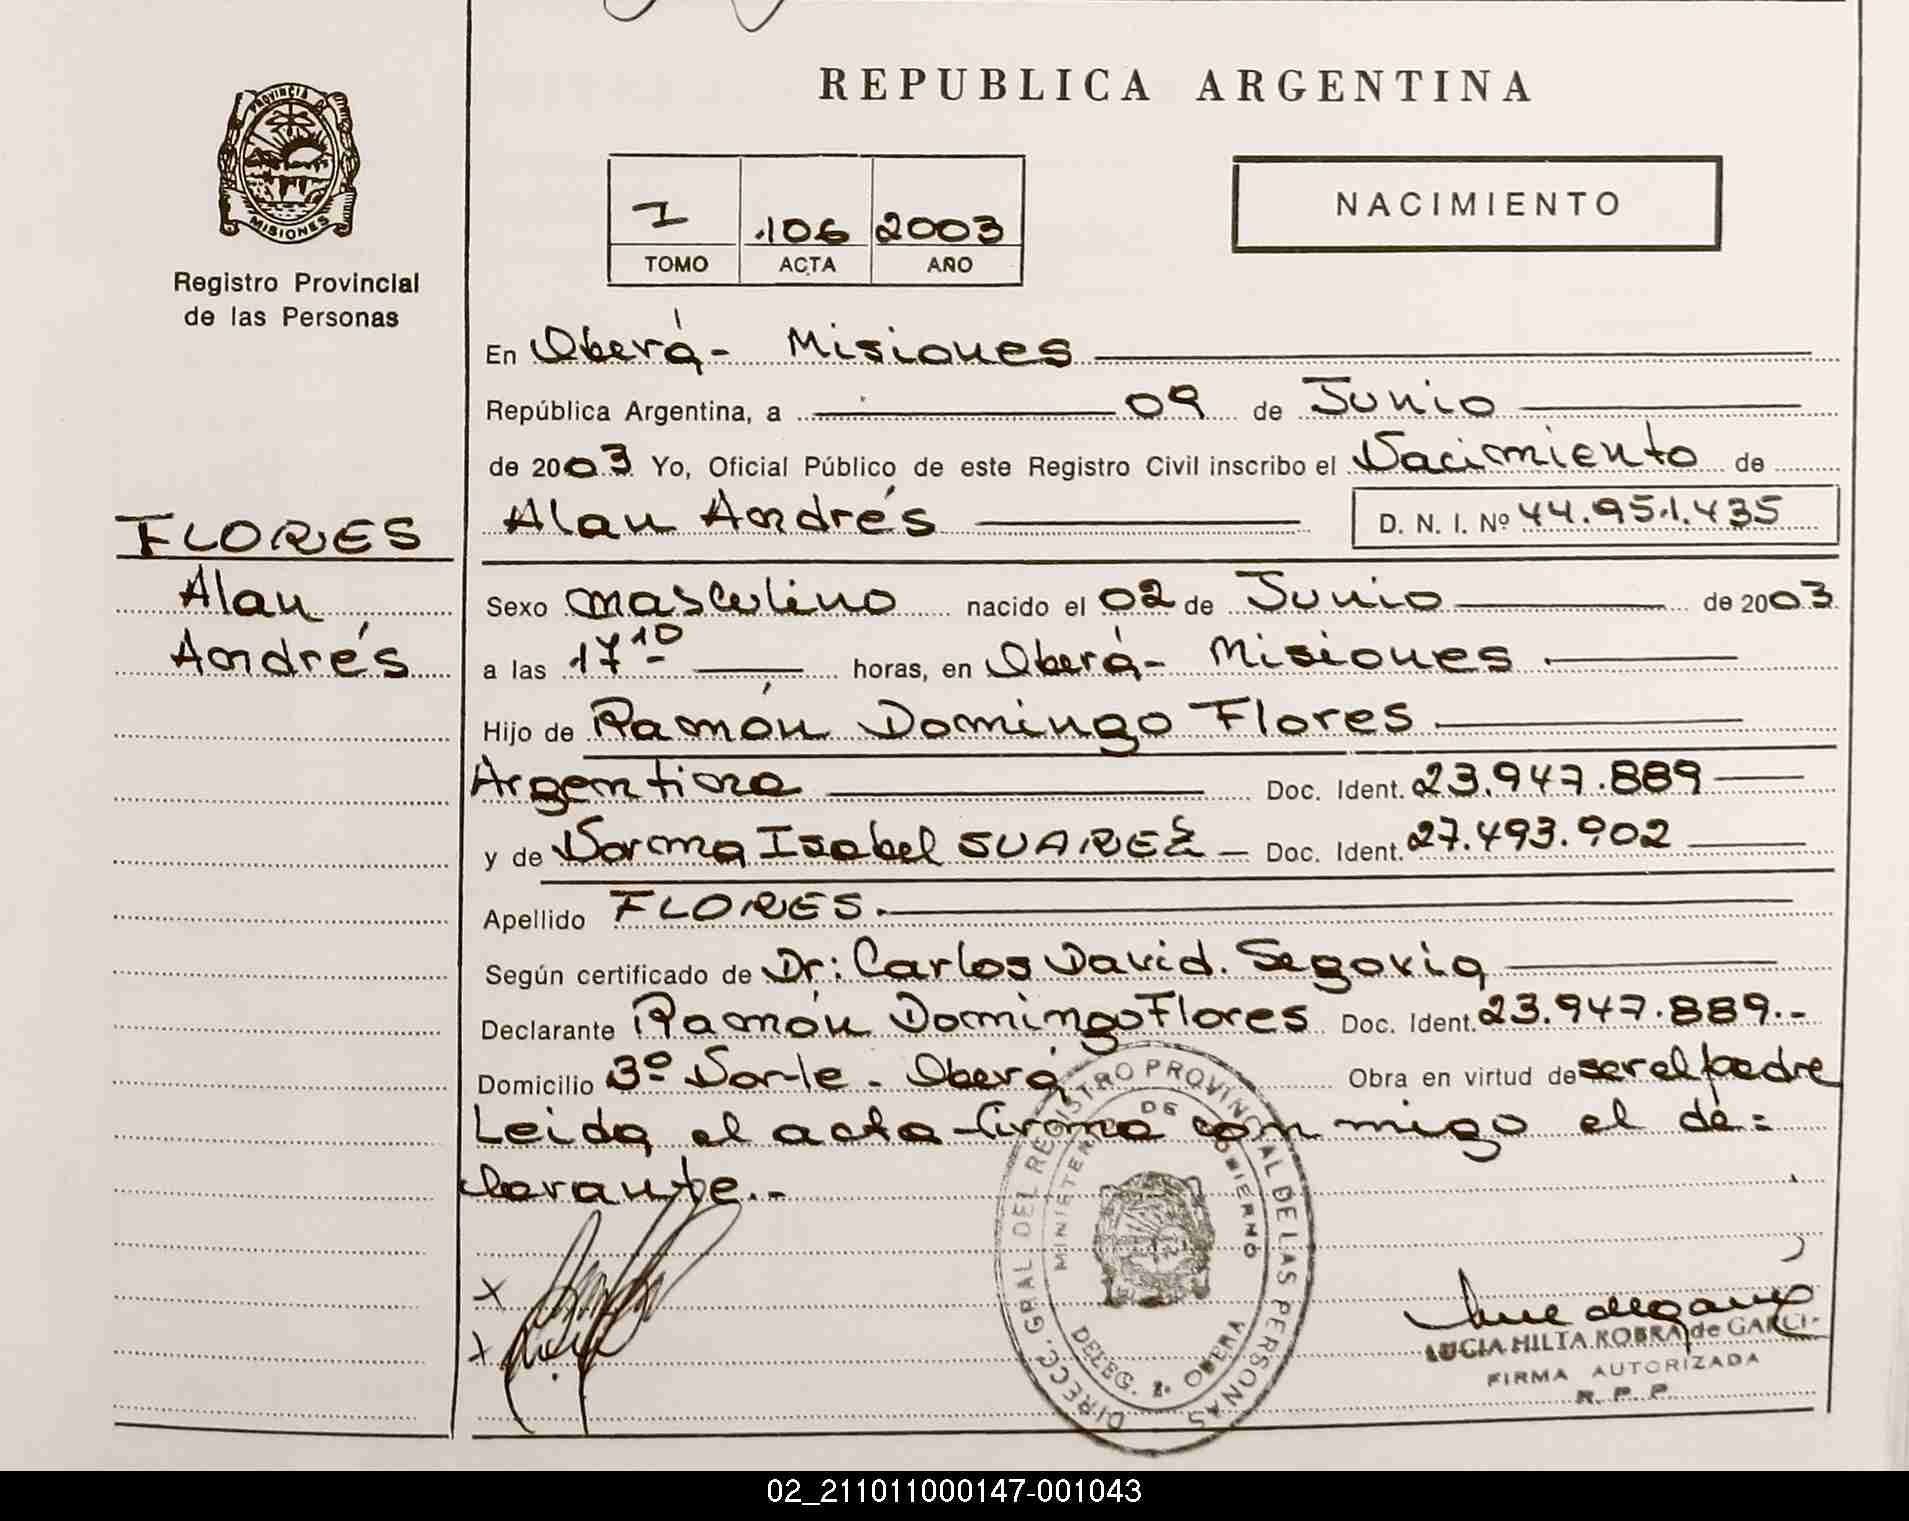 REPUBLICA ARGENTINA
PROVINCIA DE
MISIONES
Registro Provincial
de las Personas
I .106 2003
TOMO ACTA AÑO
NACIMIENTO
En Oberá - Misiones
República Argentina, a 09 de Junio
de 2003 Yo, Oficial Público de este Registro Civil inscribo el Nacimiento de
Alan Andrés D. N. I. Nº 44.951.435
FLORES
Alan
Andrés
Sexo masculino nacido el 02 de Junio de 2003
a las 17 10 horas, en Oberá - Misiones
Hijo de Ramón Domingo Flores
Argentina Doc. Ident. 23.947.889
y de Norma Isabel SUAREZ - Doc. Ident. 27.493.902
Apellido FLORES.
Según certificado de Dr: Carlos David. Segovia
Declarante Ramón Domingo Flores Doc. Ident. 23.947.889.-
Domicilio 3º Norte - Oberá Obra en virtud de ser el padre
Leida el acta firma conmigo el de=
clarante.-
DIRECC. GRAL DEL REGISTRO PROVINCIAL DE LAS PERSONAS
MINISTERIO DE GOBIERNO
DELEG. OBERA
LUCIA HILTA ROBRA de GARCI-
FIRMA AUTORIZADA
R. P. P.
02_211011000147-001043